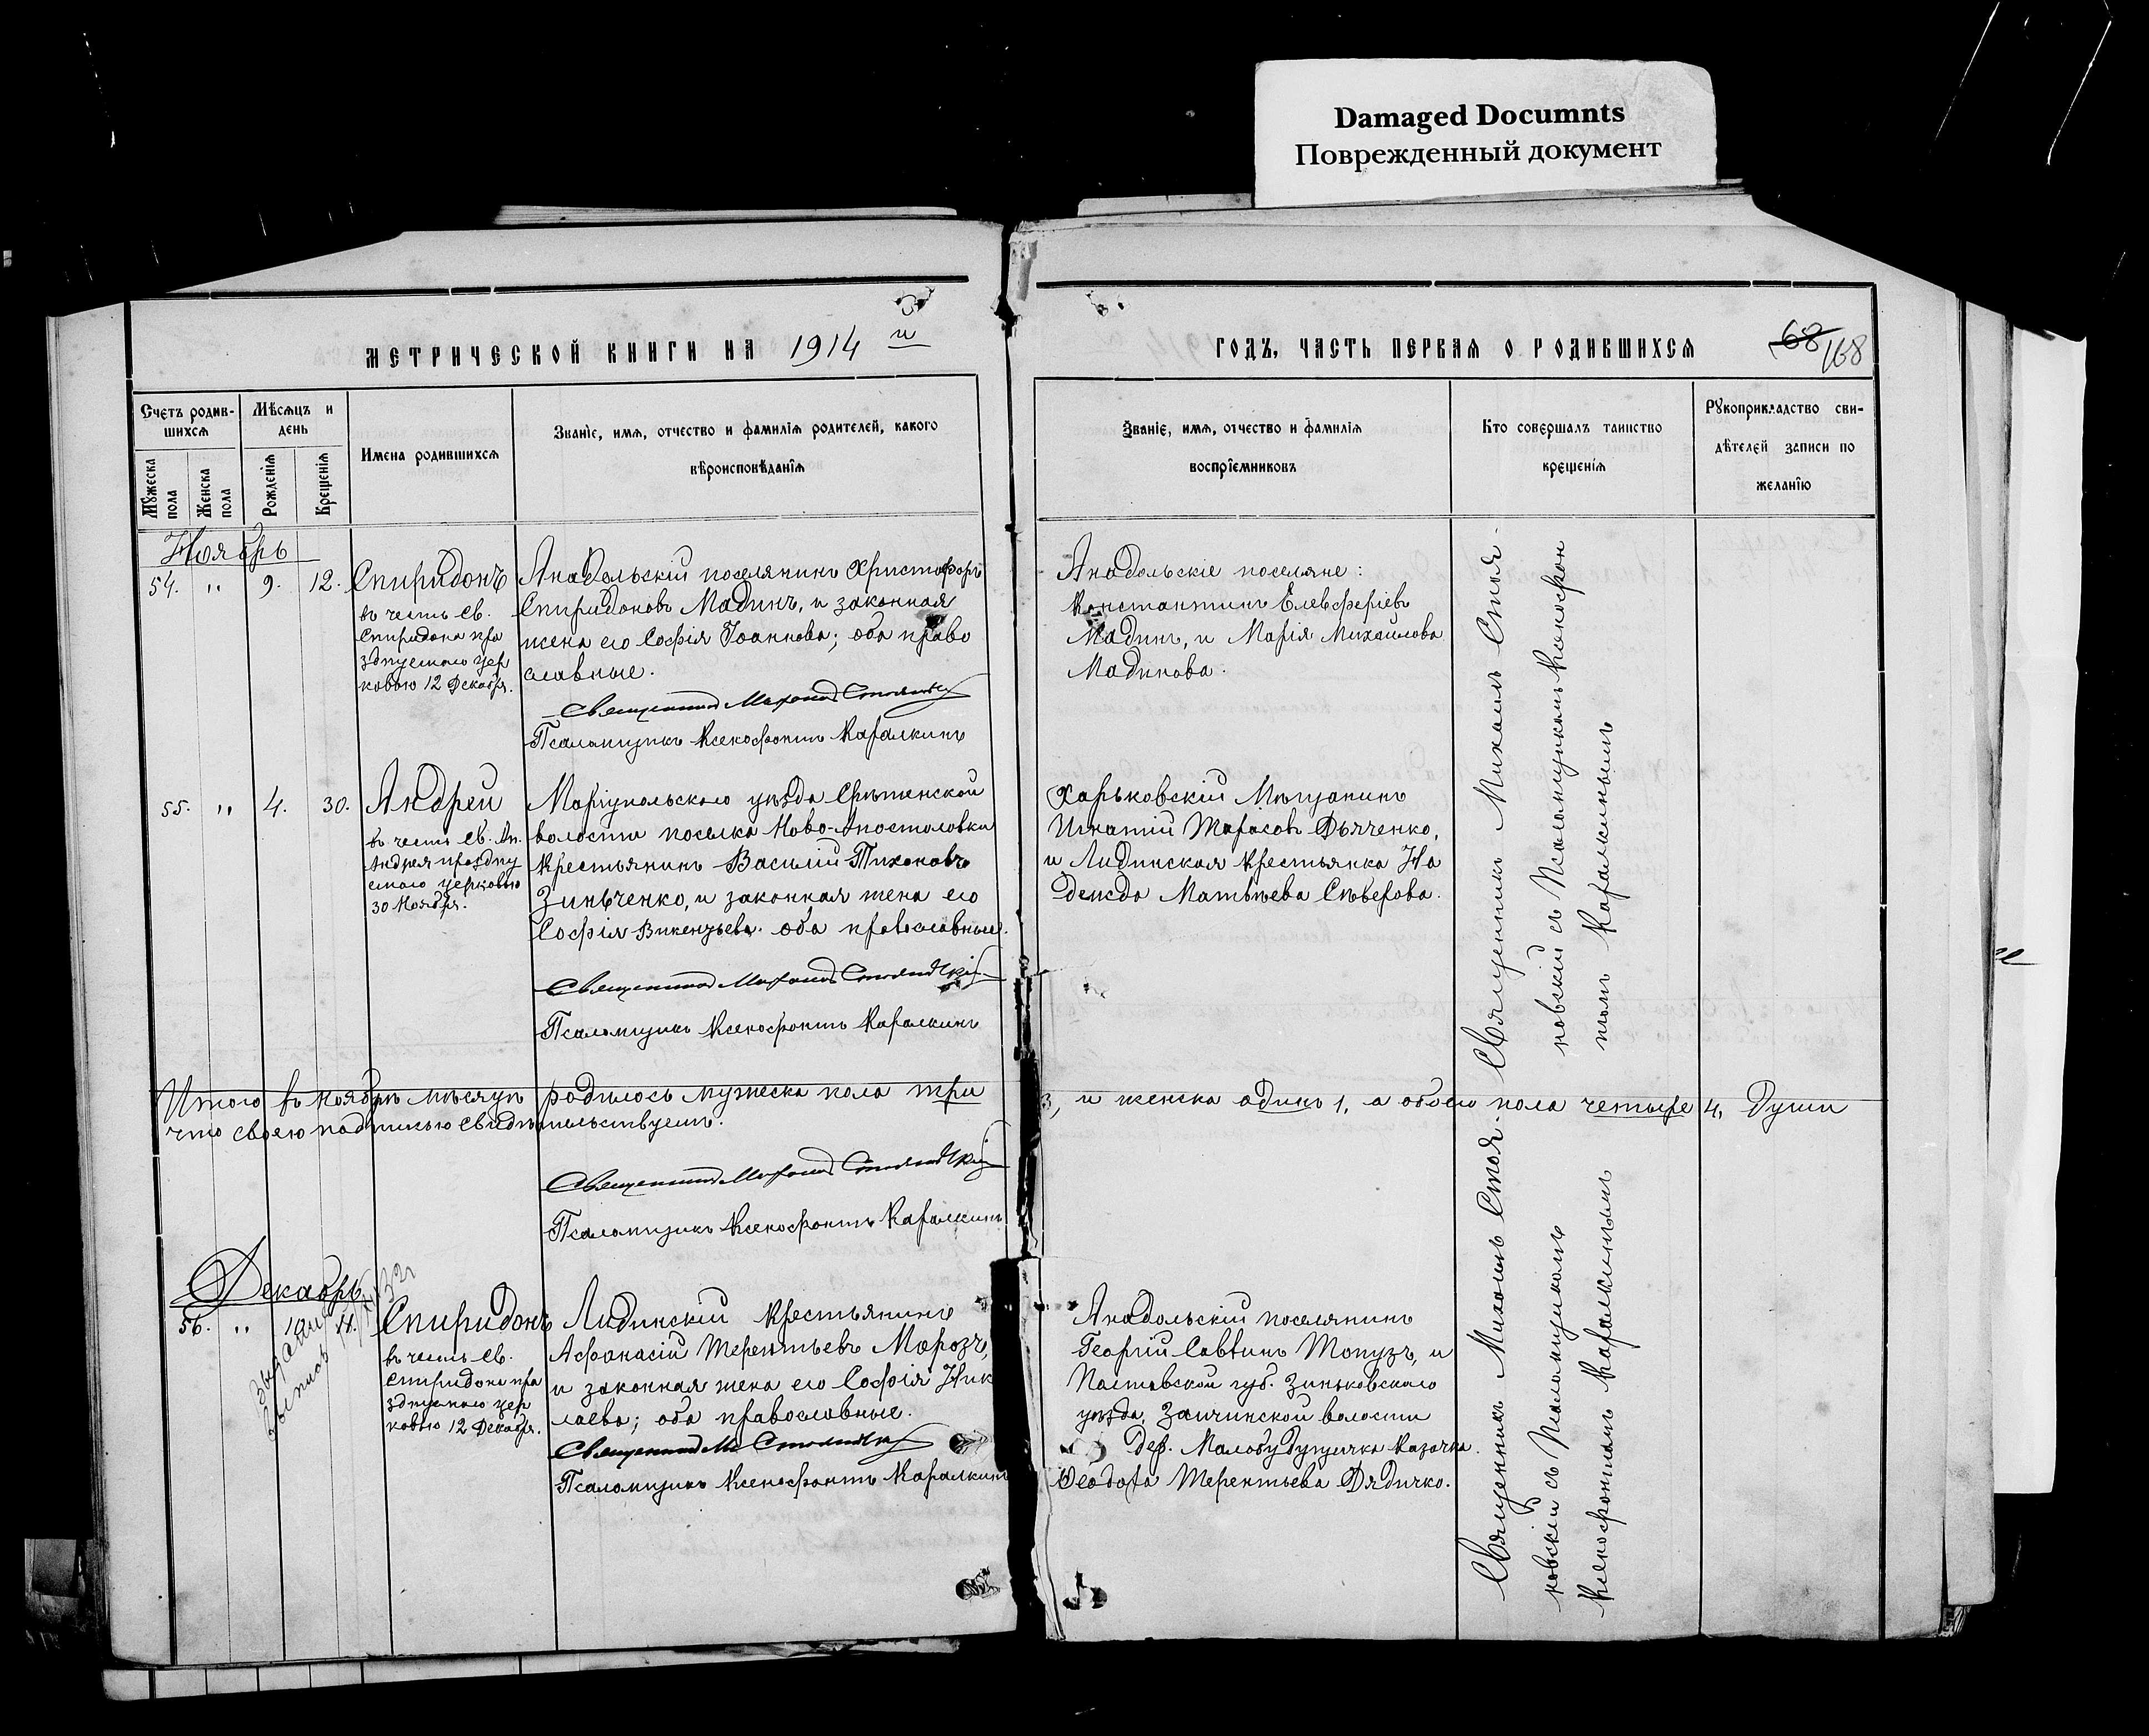 Damaged Documnts
Поврежденный документ
МЕТРИЧЕСКОЙ КНИГИ НА 1914 й
Счетъ родив-
шихся
Мѣсяцъ и
день
Имена родившихся
Званіе, имя, отчество и фамилія родителей, какого
вѣроисповѣданія
Мужеска
пола
Женска
пола
Рожденія
Крещенія
Ноябрь
54. " 9. 12. Спиридонъ
въ честь св.
Спиридона пра
зднуемаго цер
ковью 12 Декабря.
Анадольскій поселянинъ Христофоръ
Спиридоновъ Мадинъ, и законная
жена его Софія Іоаннова; оба право
славные.
Священникъ Михаилъ
Псаломщикъ Ксенофонтъ Каралкинъ
55. " 4. 30. Андрей
въ честь св. Ап.
Андрея празdну
емаго церковью
30 Ноября.
Маріупольскаго уѣзда Срѣтенской
волости поселка Ново-Апостоловки
крестьянинъ Василій Тихоновъ
Зинченко, и законная жена его
Софія Викентьева. оба православные.
Священникъ Михаилъ Стояновскій
Псаломщикъ Ксенофонтъ Каралкинъ
Итого въ ноябрѣ мѣсяцѣ родилось мужеска пола три
что своею подписью свидѣтельствуемъ.
Священникъ Михаилъ Стояновскій
Псаломщикъ Ксенофонтъ Каралкинъ
Декабрь
56. " 10 11. Спиридонъ
въ честь св.
Спиридона пра
зднуемаго цер
ковью 12 Декабря.
Лидинскій крестьянинъ
Афанасій Терентьевъ Морозъ,
и законная жена его Софія Ник
лаева; оба православные.
Священникъ
Псаломщикъ Ксенофонтъ Каралкинъ
ГОДЪ, ЧАСТЬ ПЕРВАЯ О РОДИВШИХСЯ
68 168
Званіе, имя, отчество и фамилія
воспріемниковъ
Кто совершалъ таинство
крещенія
Рукоприкладство сви-
дѣтелей записи по
желанію
Анадольскіе поселяне:
Константинъ Елевферіевъ
Мадинъ, и Марія Михаилова
Мадинова.
Харьковскій Мѣщанинъ
Игнатій Тарасовъ Дьяченко,
и Лидинская крестьянка На
дежда Матвѣева Сѣверова.
Священникъ Михаилъ Стоя-
новскій съ Псаломщикомъ Ксенофон
томъ Каралкинымъ
3, и женска одинъ 1, а обоего пола четыре 4, души
Анадольскій поселянинъ
Георгій Саввинъ Топузъ, и
Полтавской губ. Зиньковскаго
уѣзда,  волости
дер. казачка
Ѳеодора Терентьева Дядичко.
Священникъ Михаилъ Стоя-
новскій съ Псаломщикомъ
Ксенофонтомъ Каралкинымъ